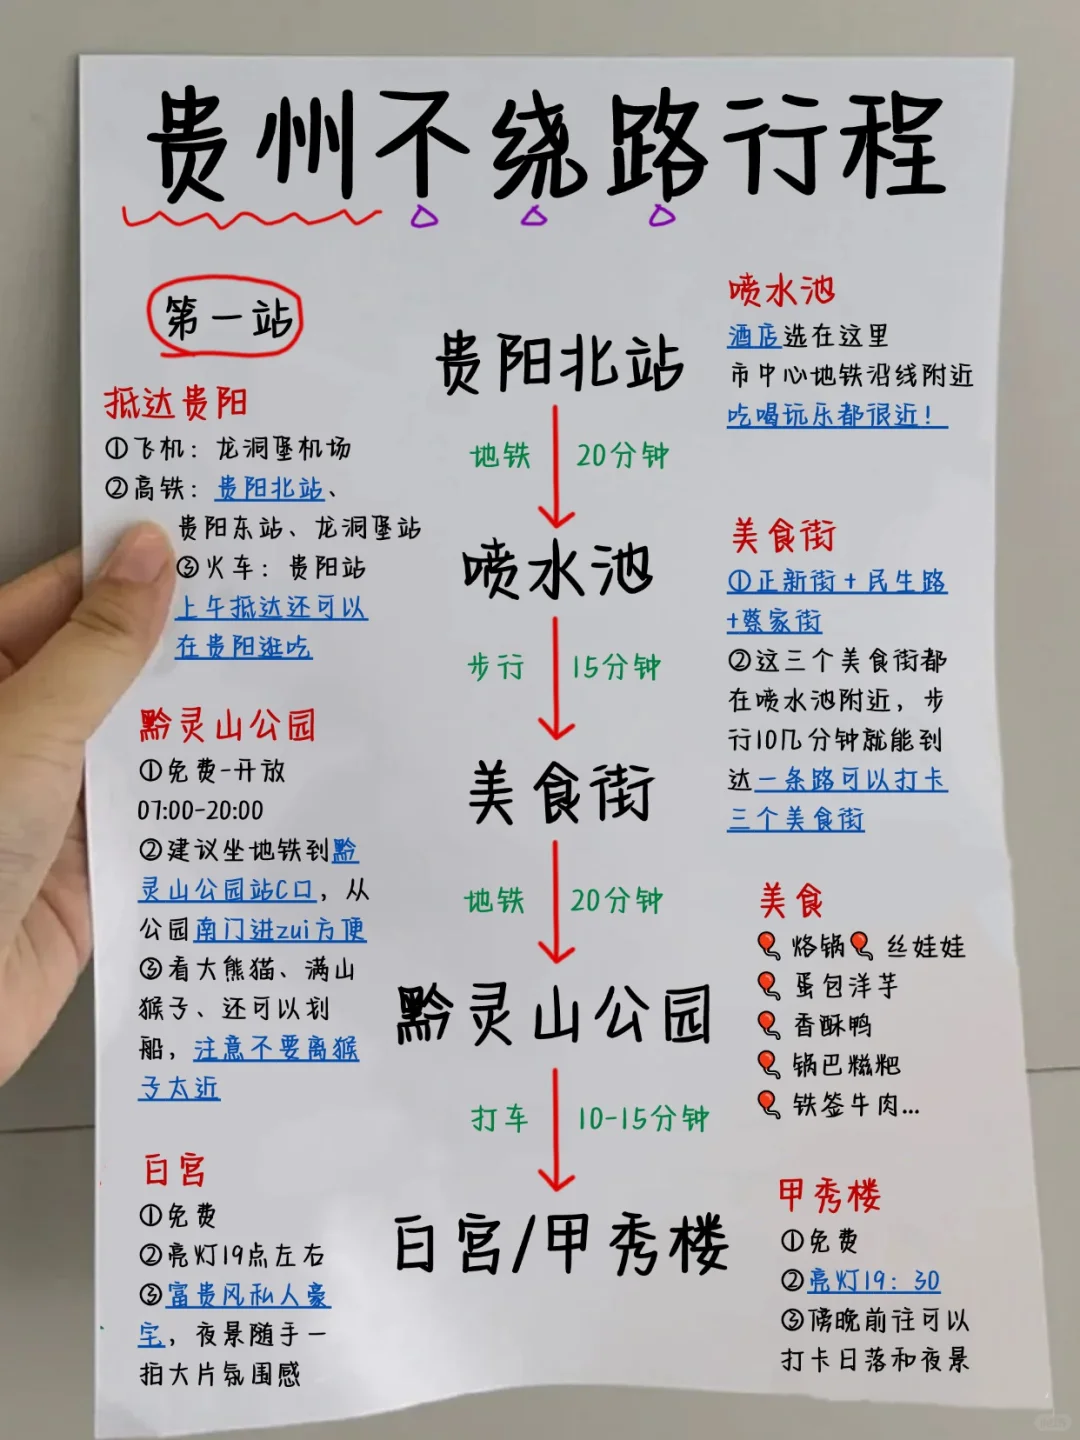 贵州不绕路行程
第一站
抵达贵阳
①飞机：龙洞堡机场
②高铁：贵阳北站、
贵阳东站、龙洞堡站
③火车：贵阳站
上午抵达还可以
在贵阳逛吃
黔灵山公园
①免费-开放
07:00-20:00
②建议坐地铁到黔
灵山公园站C口，从
公园南门进zui方便
③看大熊猫、满山
猴子、还可以划
船，注意不要离猴
子太近
白宫
①免费
②亮灯19点左右
③富贵风私人豪
宅，夜景随手一
拍大片氛围感
贵阳北站
地铁 20分钟
喷水池
步行 15分钟
美食街
地铁 20分钟
黔灵山公园
打车 10-15分钟
白宫/甲秀楼
喷水池
酒店选在这里
市中心地铁沿线附近
吃喝玩乐都很近！
美食街
①正新街+民生路
+蔡家街
②这三个美食街都
在喷水池附近，步
行10几分钟就能到
达一条路可以打卡
三个美食街
美食
烙锅 丝娃娃
蛋包洋芋
香酥鸭
锅巴糍粑
铁签牛肉...
甲秀楼
①免费
②亮灯19：30
③傍晚前往可以
打卡日落和夜景